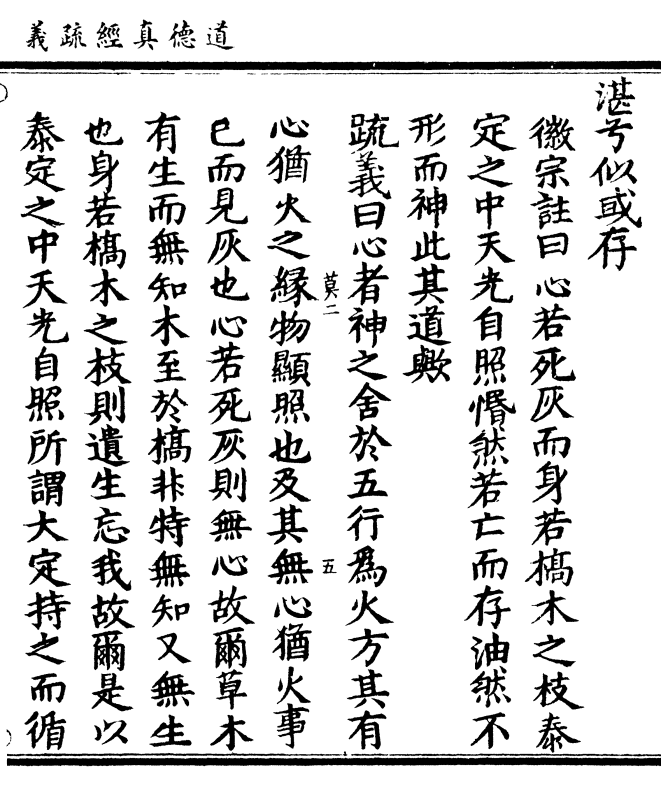 道德真經疏義
湛兮似或存
徽宗註曰心若死灰而身若槁木之枝泰
定之中天光自照惛然若亡而存油然不
形而神此其道歟
疏義曰心者神之舍於五行為火方其有
莫二
五
心猶火之緣物顯照也及其無心猶火事
已而見灰也心若死灰則無心故爾草木
有生而無知木至於槁非特無知又無生
也身若槁木之枝則遺生忘我故爾是以
泰定之中天光自照所謂大定持之而循